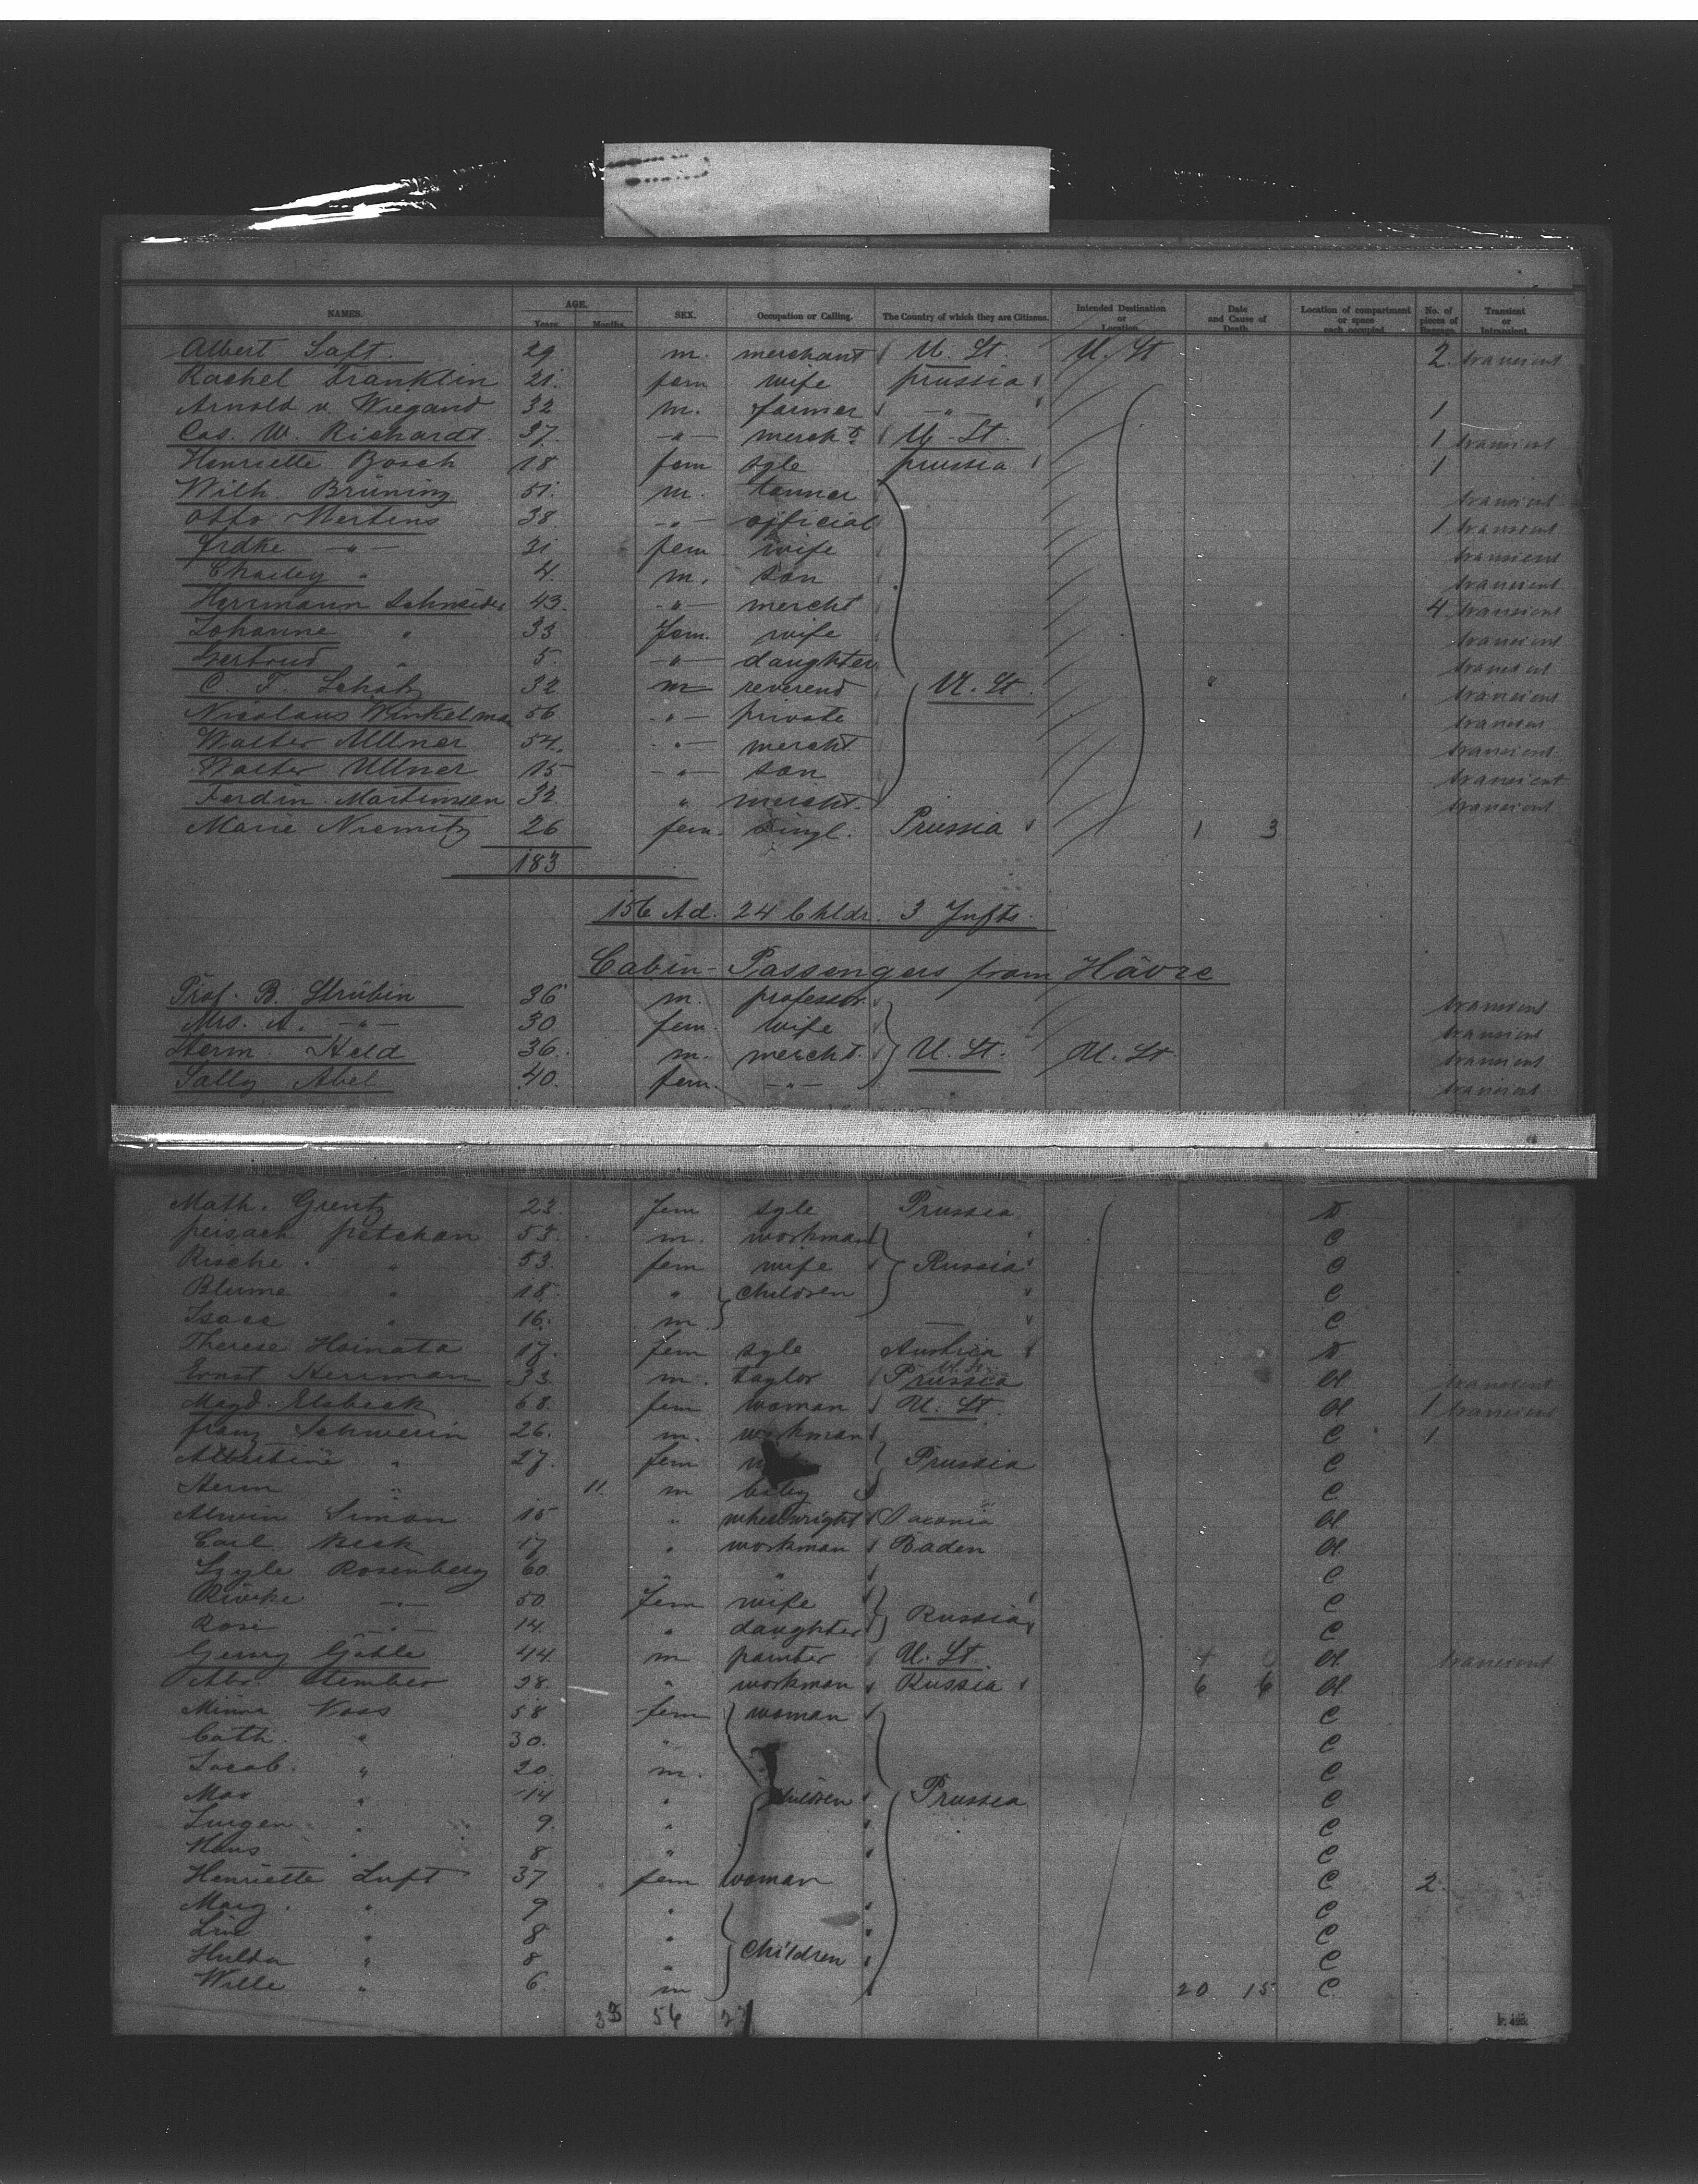 NAMES. AGE. Years. Months. SEX. Occupation or Calling. The Country of which they are Citizens. Intended Destination or Location. Date and Cause of Death. Location of compartment or space each occupied. No. of pieces of Baggage. Transient or Intransient.
Albert Saft. 29 m. merchant U. St. U. St 2 transient
Rachel Franklin 21. fem wife prussia
Arnold v. Wiegand 32 m. farmer -"- 1
Cas. W. Richardt 37. -"- mercht U. St. 1 transient
Henriette Bosch 18 fem sgle prussia 1
Wilh. Brüning 51. m. tanner transient
Otto Mertens 38. -"- official 1 transient
-"- 31 fem wife transient
Charley " 4. m. son transient
Herrmann Schneider 43. -"- mercht 4 transient
Johanne " 33 fem. wife transient
Gertrud " 5. -"- daughter transient
C. F. 32 m reverend U. St. transient
Nicolaus Winkelman 56 -"- private transient
Walter Ullner 54. -"- mercht transient
Walter Ullner 15 -"- son transient
Ferdin. Martenssen 32 " mercht. transient
Marie Niemitz 26 fem. singl. Prussia 1 3
183
156 Ad. 24 Chldr. 3 Infts.
Cabin-Passengers from Hâvre
Prof. B. Strübin 36 m. professor transient
Mrs. A. -"- 30 fem. wife transient
Herm. Held 36. m. mercht. U. St. U. St. transient
Sally Abel 40. fem. -"- transient
Math. Grentz 23. fem sgle Prussia
peisach petchan 53. m. workman C
Rische " 53. fem wife Russia C
Blume " 18. " children C
Isaac " 16. m. C
Therese Hainata 17. fem sgle Austria
Ernst Herrman 33. m. taylor Prussia U. St. transient
Magd. Elsbeck 68. fem woman U. St. 1 transient
franz Schwerin 26. m. workman C 1
Albertine " 27. fem Prussia C
Herm " 11. m baby C
Alwin Simon 15 " wheelwright Saxonia
Carl Beck 17 " workman Baden
Rosenberg 60. " " C
Riwke -"- 50. fem wife Russia C
Rosi -"- 14. " daughter C
Georg Gäble 44 m painter U. St. transient
Abr. Stember 28. " workman Russia 6 6
Minna Voss 58 fem woman C
Cath. " 30. " C
Jacob. " 20. m. C
Max " 14 " children Prussia C
Jurgen " 9. " C
Hans " 8 " C
Henriette Luft 37 fem woman C 2
Marg. " 9 " C
" 8 " C
Hulda " 8 " Children C
Wille " 6. m 20 15 C
33 56